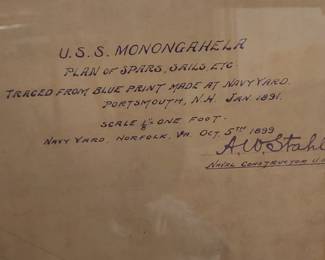 U.S.S. MONONGAHELA
PLAN OF SPARS, SAILS, ETC
TRACED FROM BLUE PRINT MADE AT NAVY YARD.
PORTSMOUTH, N.H. JAN 1891.
SCALE ⅛" ONE FOOT.
NAVY YARD, NORFOLK, VA. OCT. 5TH 1899
A.W. Stahl
NAVAL CONSTRUCTOR U.S